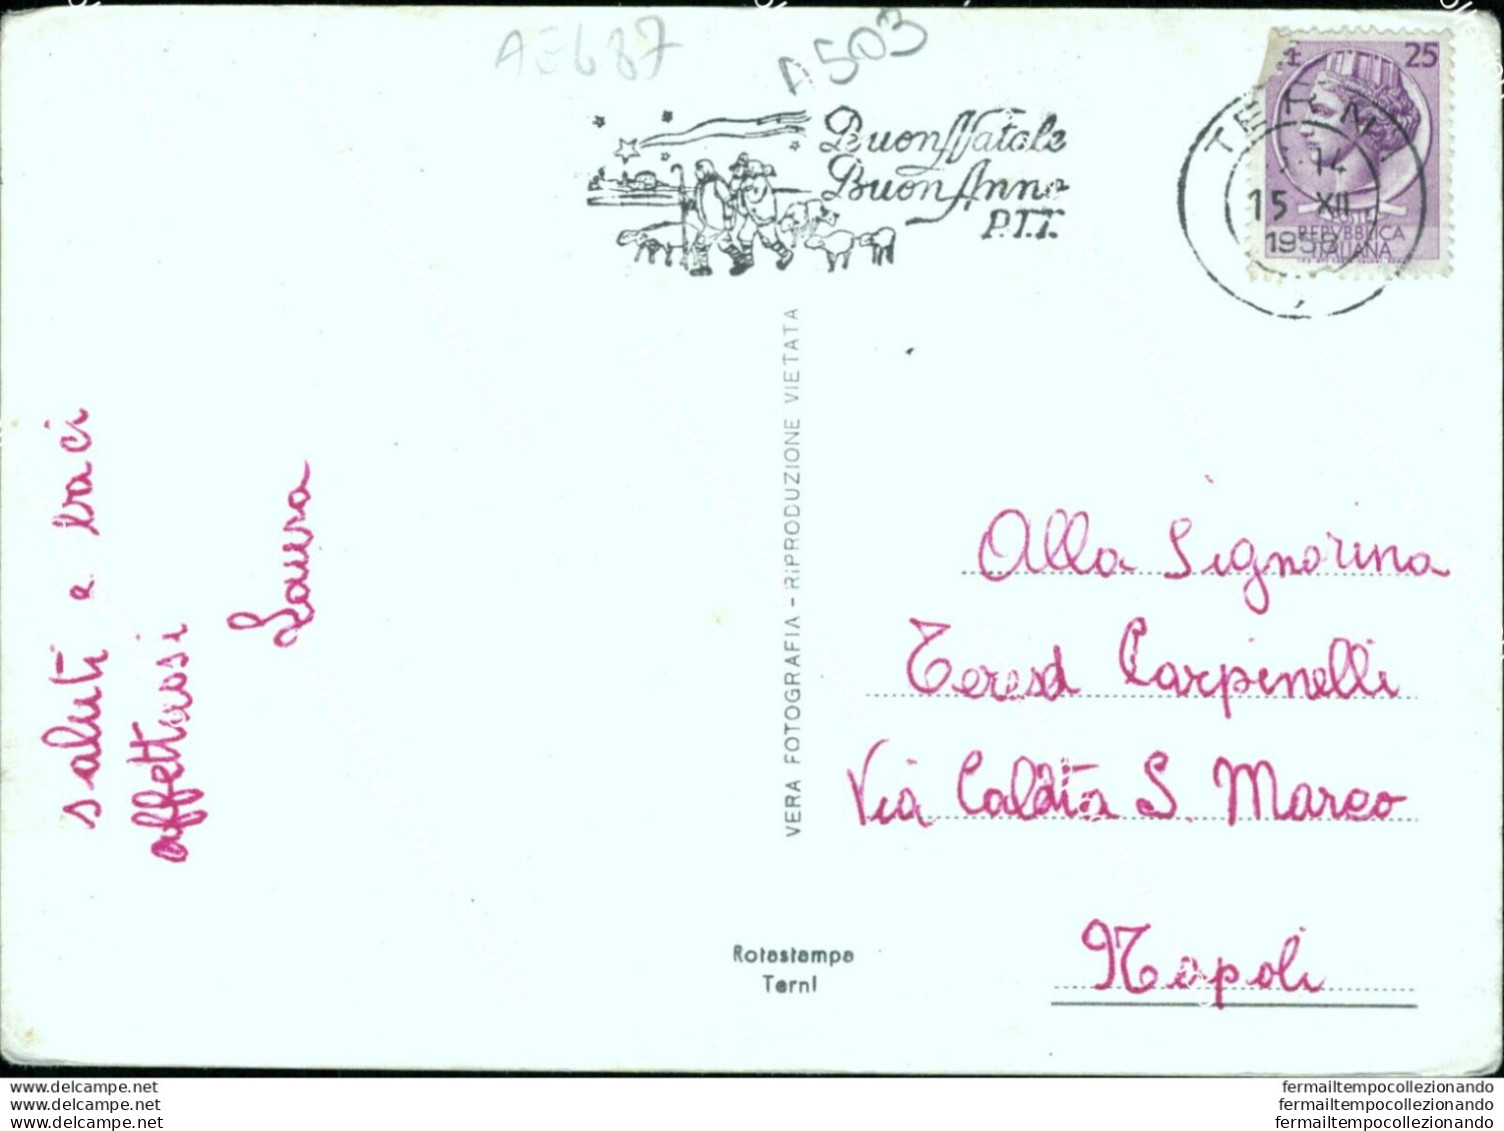 AE687
A503
Buon Natale
Buon Anno
P.T.T.
25
TERNI
14
15 XII
1958
POSTE
REPVBBLICA
ITALIANA
saluti e baci
affettuosi
Laura
VERA FOTOGRAFIA - RIPRODUZIONE VIETATA
Alla Signorina
Teresa Carpinelli
Via Caldta S. Marco
Napoli
Rotastampa
Terni
www.delcampe.net
www.delcampe.net
www.delcampe.net
fermailtempocollezionando
fermailtempocollezionando
fermailtempocollezionando